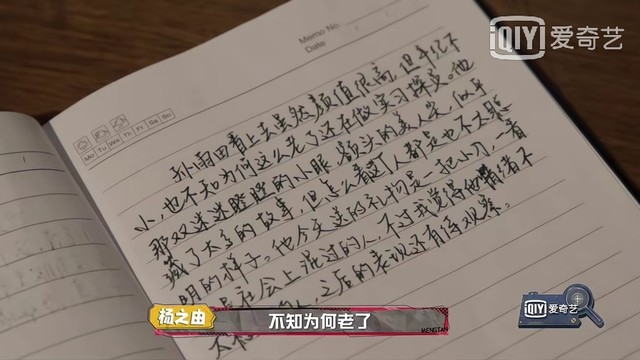 Memo No.
Date
Mo Tu We Th Fr Sa Su
孙雨田看上去虽然颜值很高,但年纪不
小,也不知为何这么老了还在做实习探员。他
那双迷迷瞪瞪的小眼 额头的美人尖,似乎
藏了太多的故事,但怎么看这个人都是也不太聪
明的样子。他今天送的礼物是一把小刀,一看
是社会上混过的人,不过我觉得他情绪不
人,之后的表现还有待观察。
iQIYI 爱奇艺
杨之由 不知为何老了
MENGTAN
iQIYI 爱奇艺